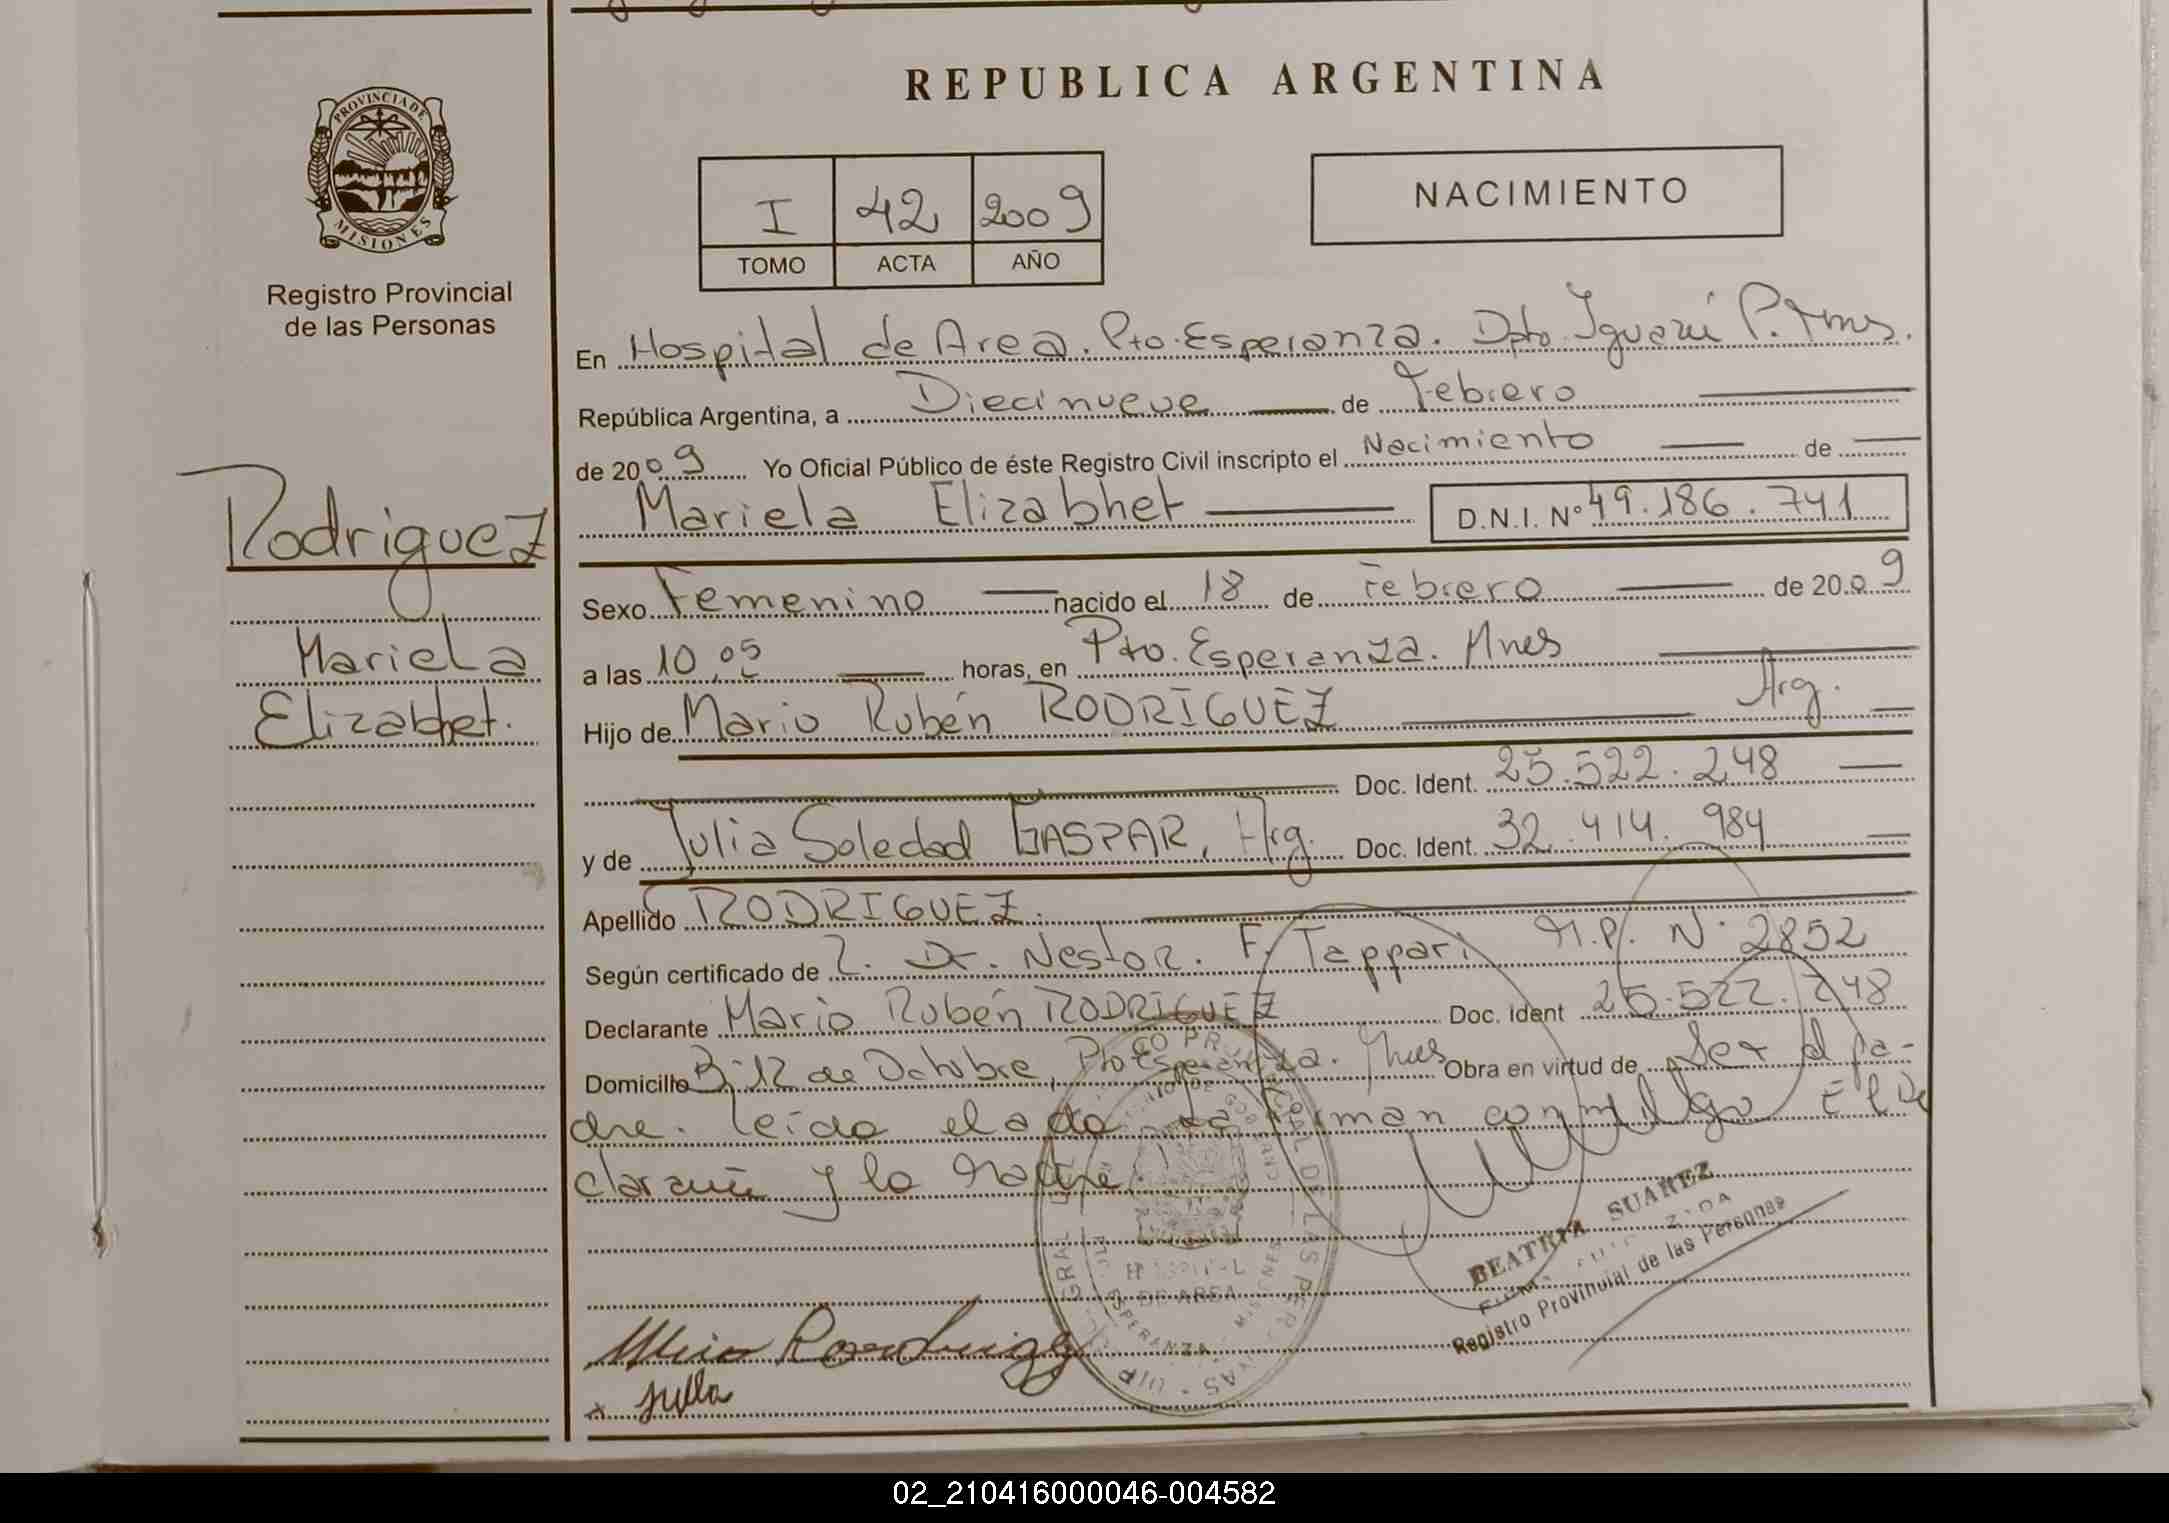 REPUBLICA ARGENTINA
PROVINCIA DE
MISIONES
Registro Provincial
de las Personas
I 42 2009
TOMO ACTA AÑO
NACIMIENTO
En Hospital de Area. Pto. Esperanza. Dpto. Iguazú P.
República Argentina, a Diecinueve de Febrero
de 2009 Yo Oficial Público de éste Registro Civil inscripto el Nacimiento de
Mariela Elizabhet D.N.I. Nº 49.186.741
Rodriguez
Mariela
Elizabhet.
Sexo Femenino nacido el 18 de Febrero de 2009
a las 10,05 horas, en Pto. Esperanza. Mnes
Hijo de Mario Rubén RODRIGUEZ Arg.
Doc. Ident. 25.522.248
y de Julia Soledad GASPAR, Arg. Doc. Ident. 32.414.984
Apellido RODRIGUEZ.
Según certificado de Dr. Nestor. F. Tappari M.P. Nº 2852
Declarante Mario Rubén RODRIGUEZ Doc. Ident 25.522.248
Domicilio Bº 12 de Octubre, Pto Esperanza. Mnes Obra en virtud de Ser el pa-
dre. Leída el acta la firman conmigo El De
clarante y la Madre
HOSPITAL
DE AREA
ESPERANZA
MISIONES
BEATRIZ SUAREZ
Registro Provincial de las Personas
Rodriguez
x Julia
02_210416000046-004582